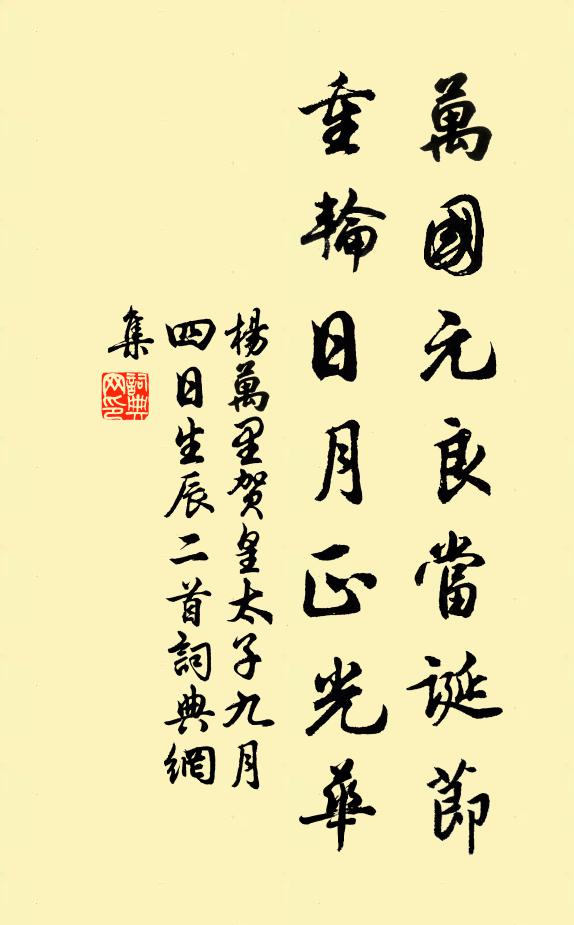 萬國元良當誕節
重輪日月正光華
楊萬里賀皇太子九月
四日生辰二首詞典網
集
詞典
网印